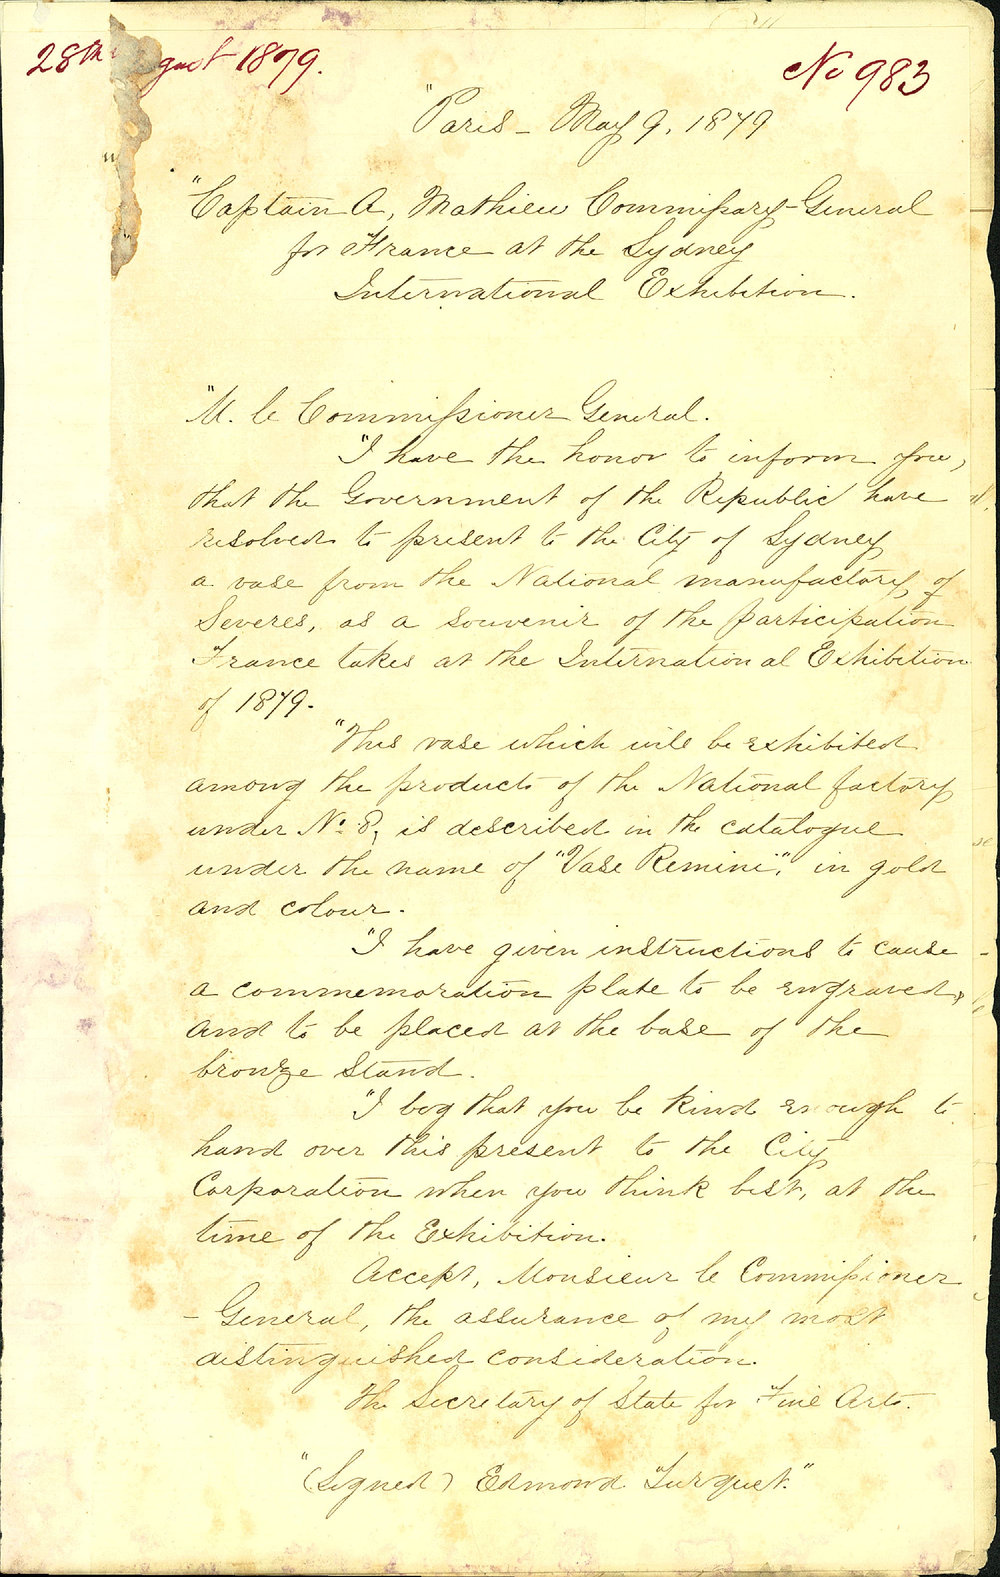 28th August 1879.
No 983
"Paris - May 9, 1879
"Captain A, Mathieu Commissary-General
for France at the Sydney
International Exhibition.
"M. le Commissioner General.
"I have the honor to inform you,
that the Government of the Republic have
resolved to present to the City of Sydney
a vase from the National manufactory of
Severes, as a souvenir of the participation
France takes at the International Exhibition
of 1879.
"This vase which will be exhibited
among the products of the National factory
under No. 8, is described in the catalogue
under the name of "Vase Remini", in gold
and colour.
"I have given instructions to cause
a commemoration plate to be engraved,
and to be placed at the base of the
bronze stand.
"I beg that you be kind enough to
hand over this present to the City
Corporation when you think best, at the
time of the Exhibition.
Accept, Monsieur le Commissioner
- General, the assurance of my most
distinguished consideration.
The Secretary of State for Fine Arts.
"(Signed) Edmond Turquet."